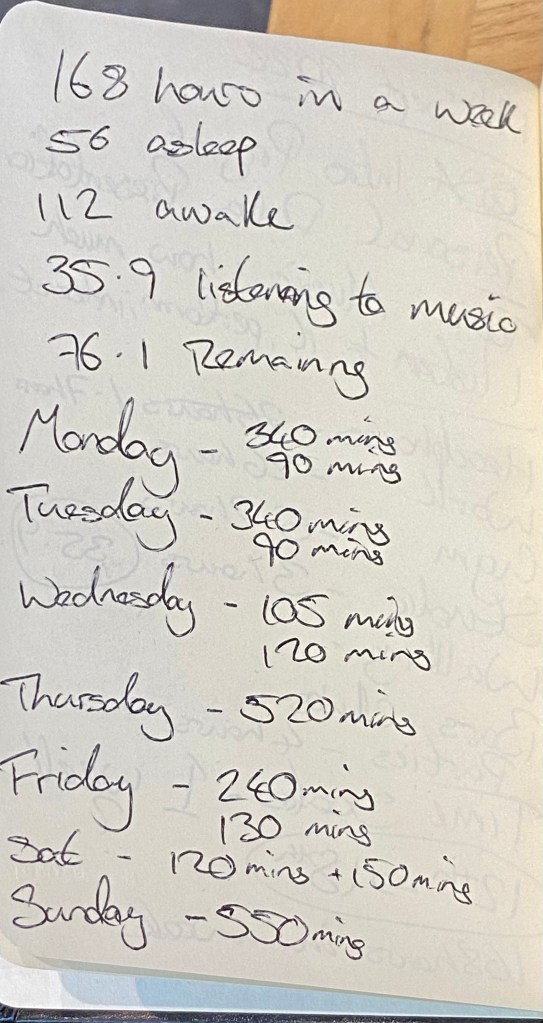 168 hours in a week
56 asleep
112 awake
35.9 listening to music
76.1 Remaining
Monday - 340 mins
90 mins
Tuesday - 340 mins
90 mins
Wednesday - 105 mins
120 mins
Thursday - 520 mins
Friday - 240 mins
130 mins
Sat - 120 mins + 150 mins
Sunday - 550 mins